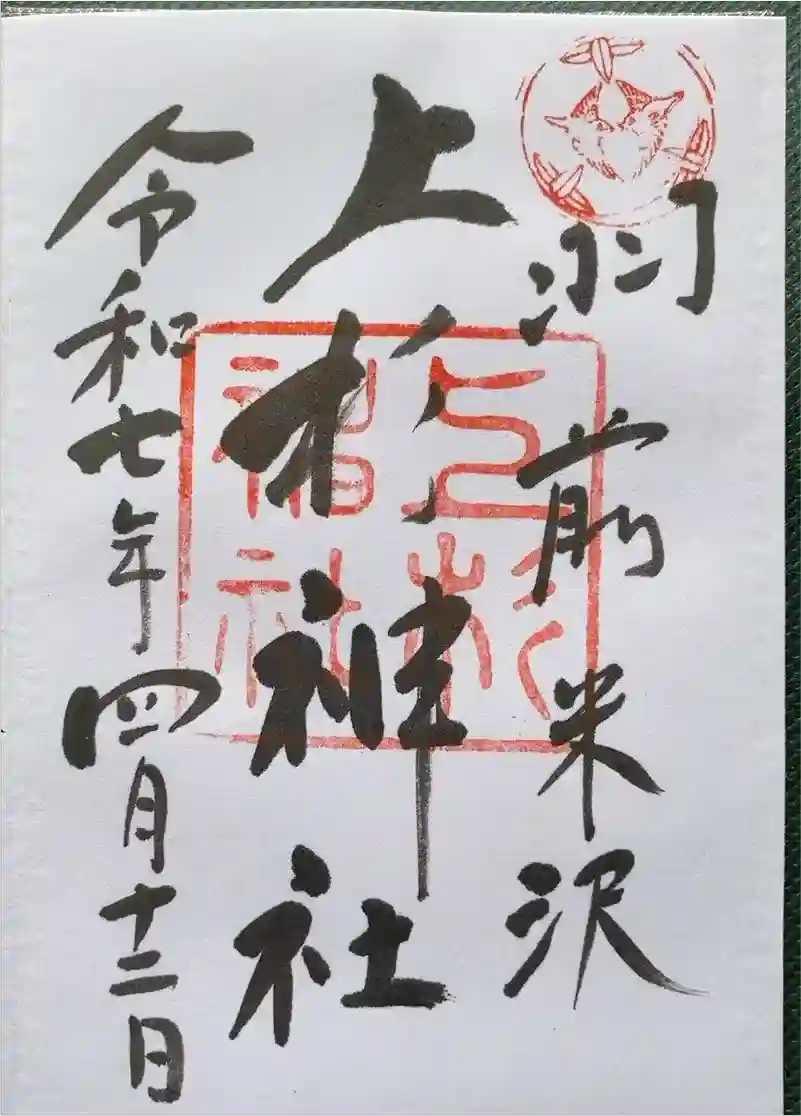 羽前米沢
上杉神社
令和七年四月十二日
上杉
神社